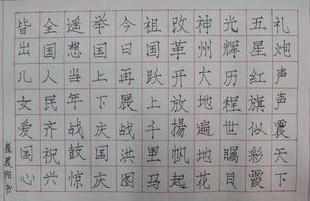 礼炮声声震天下
五星红旗似彩霞
光辉历程世瞩目
神州大地遍地花
改革开放揚帆起
祖国跃上千里马
今日再展战洪图
举国上下庆国庆
遥想当年战鼓惊
全国人民齐祝兴
皆出儿女爱国心